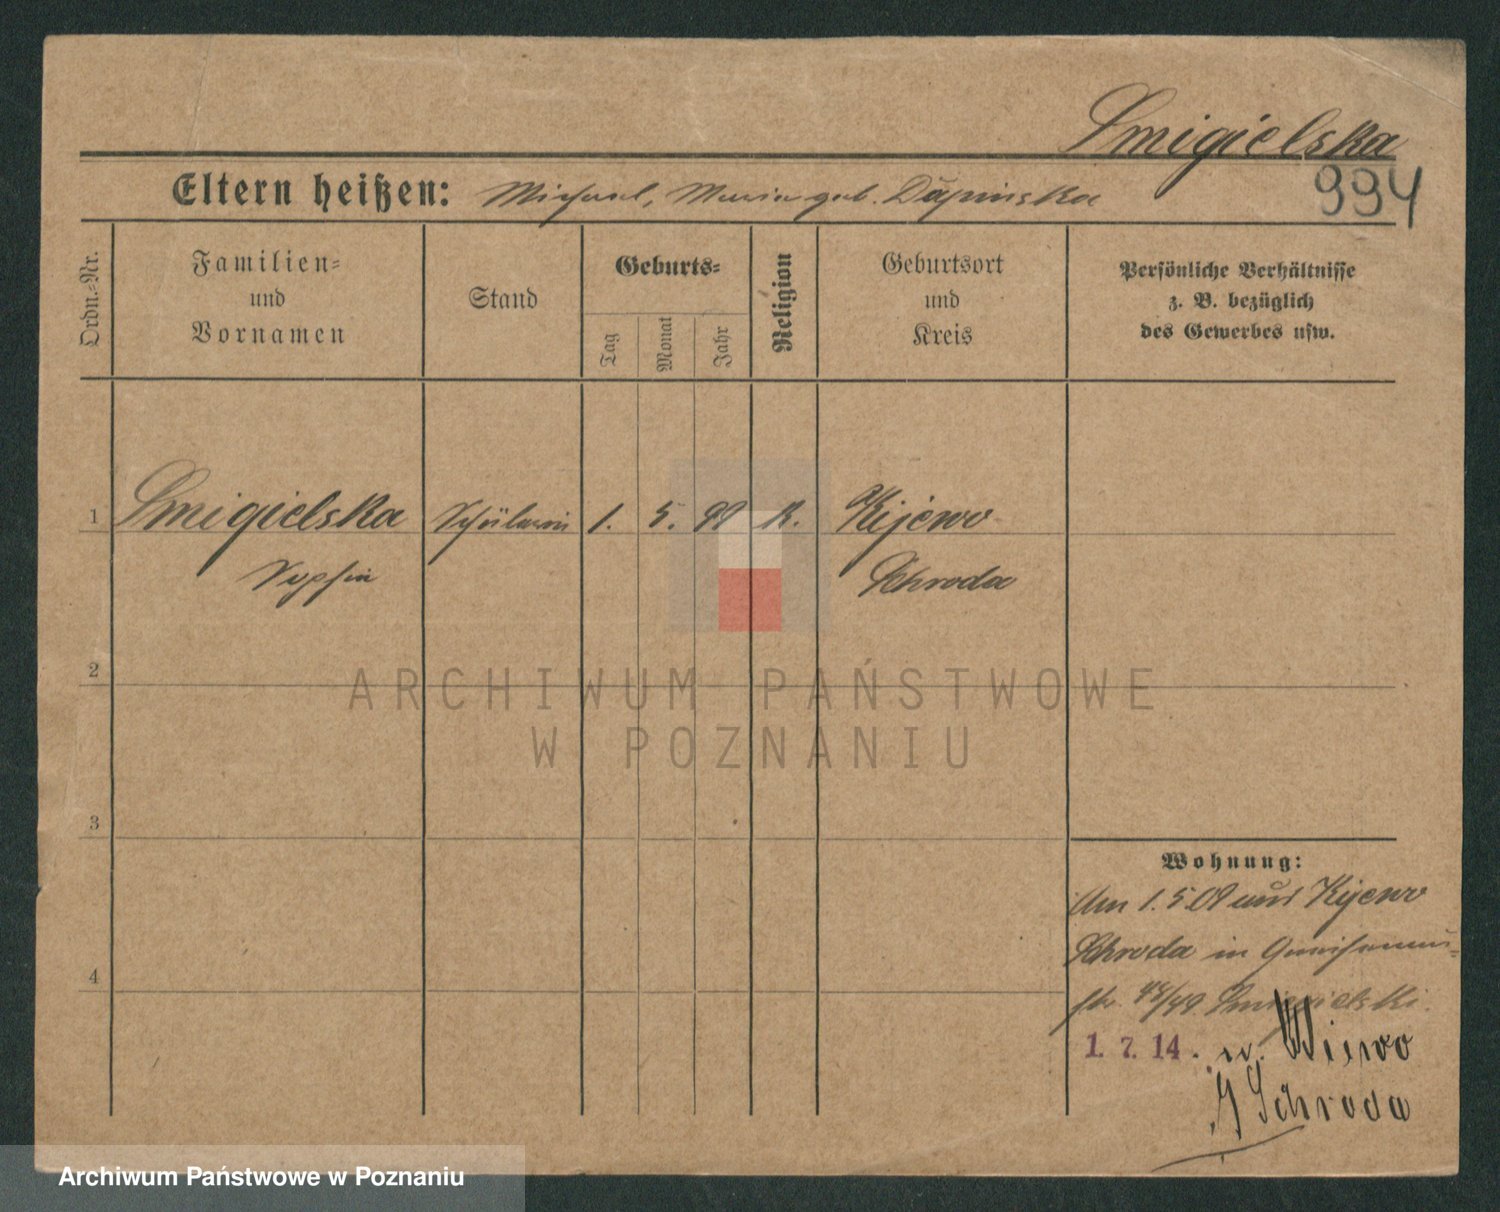 Smigielska
994
Eltern heißen: Michael, Maria geb.
Ordn.-Nr.
Familien-
und
Vornamen
Stand
Geburts-
Tag
Monat
Jahr
Religion
Geburtsort
und
Kreis
Persönliche Verhältnisse
z. B. bezüglich
des Gewerbes usw.
1 Smigielska Schülerin 1. 5. 99 K. Kijewo
Sophie Schroda
2
3
4
Wohnung:
Am 1.5.09 aus Kijewo
Schroda in
str. 48/49 Smigielski.
1. 7. 14. n.
Schroda
ARCHIWUM PAŃSTWOWE
W POZNANIU
Archiwum Państwowe w Poznaniu